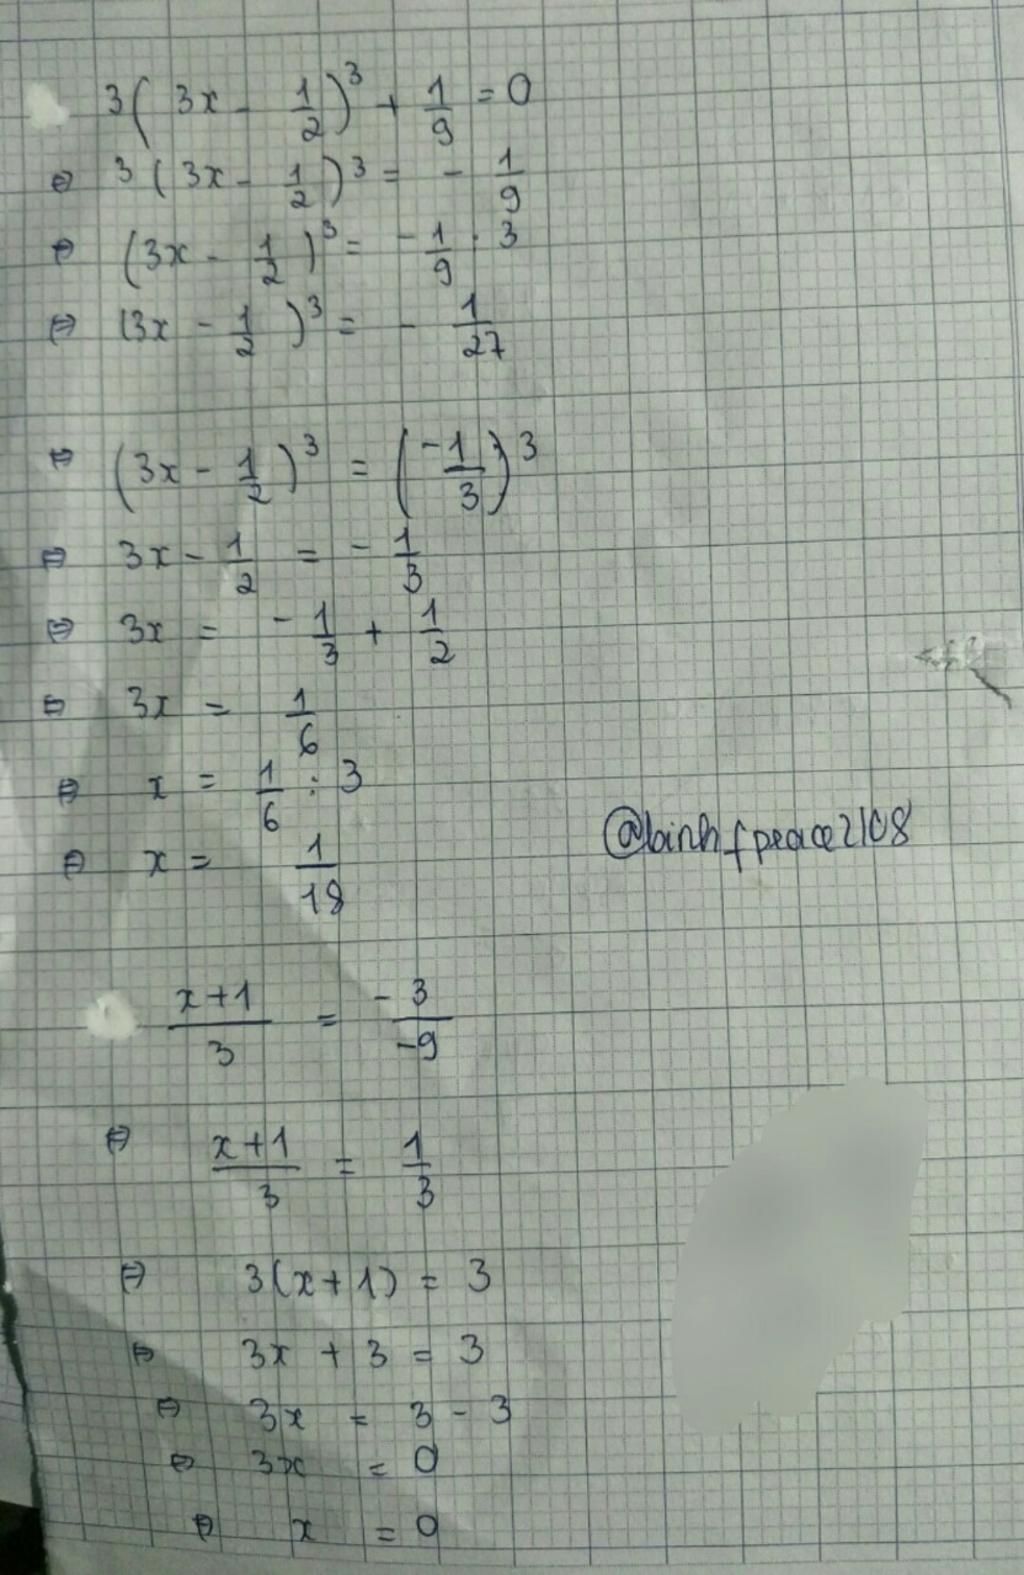 3(3x - 1/2)^3 + 1/9 = 0
⇔ 3(3x - 1/2)^3 = - 1/9
⇔ (3x - 1/2)^3 = - 1/9 : 3
⇔ (3x - 1/2)^3 = - 1/27
⇔ (3x - 1/2)^3 = (-1/3)^3
⇔ 3x - 1/2 = - 1/3
⇔ 3x = - 1/3 + 1/2
⇔ 3x = 1/6
⇔ x = 1/6 : 3
⇔ x = 1/18
(x+1)/3 = -3/-9
⇔ (x+1)/3 = 1/3
⇔ 3(x+1) = 3
⇔ 3x + 3 = 3
⇔ 3x = 3 - 3
⇔ 3x = 0
⇔ x = 0